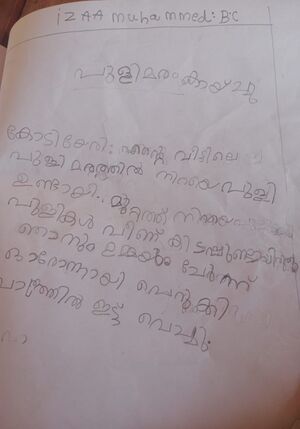 iZAA muhammed: B:C
പുളിമരം കായ്ച്ചു
കോടിയേരി: എന്റെ വീട്ടിലെ
പുളി മരത്തിൽ നിറയെ പുളി
ഉണ്ടായി.. മുറ്റത്ത് നിറയെ
പുളികൾ വീണ് കിടപ്പുണ്ടായിരുന്നു
ഞാനും ഉമ്മയും ചേർന്ന്
ഓരോന്നായി പെറുക്കി
പാത്രത്തിൽ ഇട്ട് വെച്ചു.